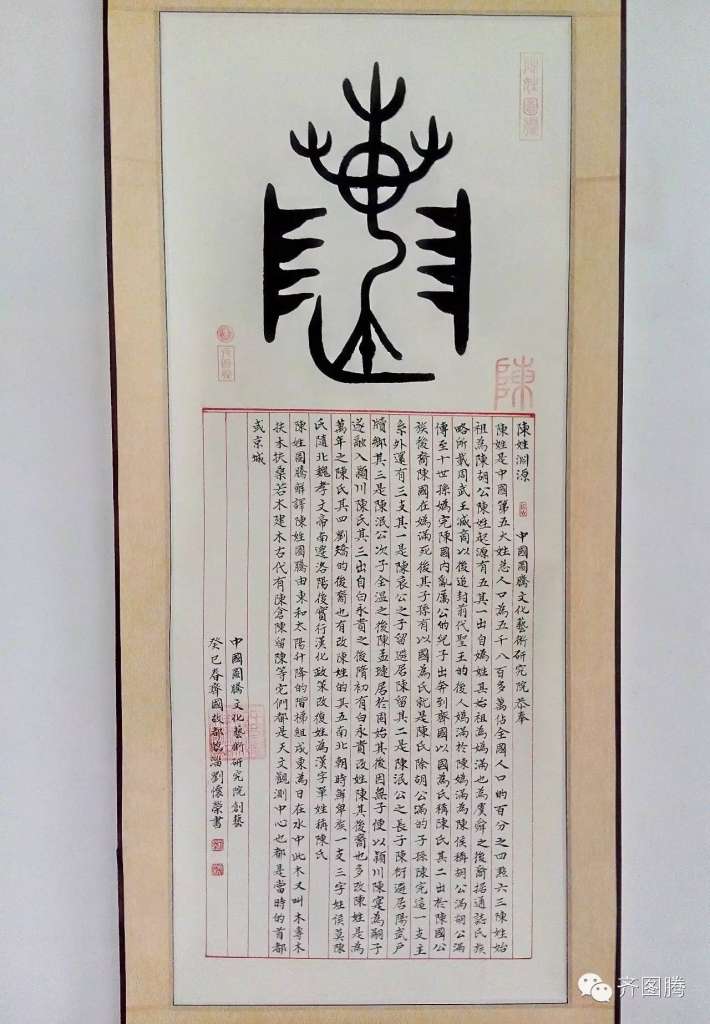 陳
陳姓淵源
中國圖騰文化藝術研究院恭奉
陳姓是中國第五大姓总人口為五千八百多萬佔全國人口的百分之四點六三陳姓始
祖為陳胡公陳姓起源有五其一出自媯姓其始祖為媯滿也為虞舜之後裔据通誌氏族
略所載周武王滅商以後追封前代聖王的後人媯滿於陳媯滿為陳侯稱胡公滿胡公滿
傳至十世孫媯完陳國内亂厲公的兒子出奔到齊國以國為氏稱陳氏其二出於陳國公
族後裔陳國在媯滿死後其子孫有以國為氏就是陳氏除胡公滿的子孫陳完這一支主
系外還有三支其一是陳哀公之子留避居陳留其二是陳泯公之長子陳衍避居陽武户
牖鄉其三是陳泯公次子全温之後陳孟璉居於固始其後因無子便以颍川陳寔為嗣子
遂融入颍川陳氏其三出自白永貴之後隋初有白永貴改姓陳其後裔也多改陳姓是為
萬年之陳氏其四劉矯的後裔也有改陳姓的其五南北朝時鮮卑族一支三字姓侯莫陳
氏隨北魏孝文帝南遷洛陽後實行漢化政策改復姓為漢字單姓稱陳氏
陳姓圖騰解譯陳姓圖騰由東和太陽升降的階梯組成東為日在水中此木又叫木專木
扶木扶桑若木建木古代有陳倉陳留陳等它們都是天文觀測中心也都是當時的首都
或京城
中國圖騰文化藝術研究院創藝
癸巳春齊國故都臨淄劉懷榮書
齐图腾